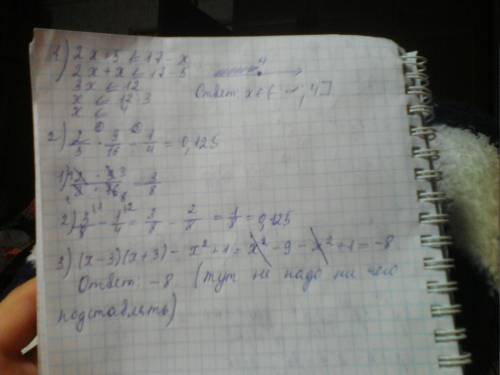 1) 2x+5 ≤ 17-x
2x+x ≤ 17-5
3x ≤ 12
x ≤ 12:3
x ≤ 4
Ответ: x ∈ (-∞, 4]
4
2) · - 1/4 = 0,125
1) = 3/8
2) 3/8 - 1/4 = 3/8 - 2/8 = 1/8 = 0,125
3) (x-3)(x+3) - x²+1 = x² - 9 - x² + 1 = -8
Ответ: -8 (тут не надо ни чего
подставлять)